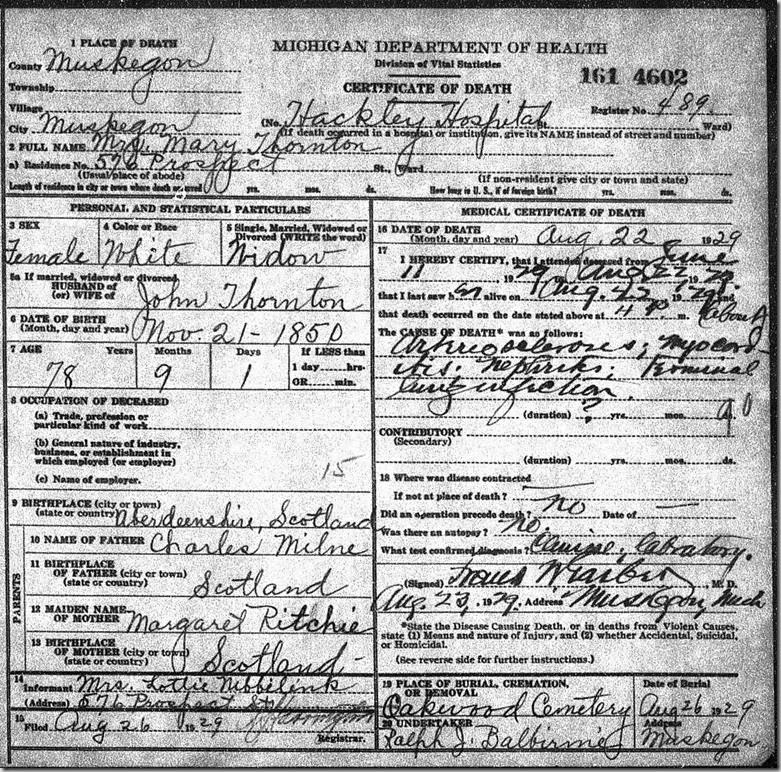 1 PLACE OF DEATH
County Muskegon
Township
Village
City Muskegon
MICHIGAN DEPARTMENT OF HEALTH
Division of Vital Statistics
CERTIFICATE OF DEATH
161 4602
Register No. 489
(No. Hackley Hospital St. Ward)
(If death occurred in a hospital or institution, give its NAME instead of street and number)
2 FULL NAME Mrs. Mary Thornton
a) Residence No. 576 Prospect St., Ward
(Usual place of abode) (If non-resident give city or town and state)
Length of residence in city or town where death occurred yrs. mos. ds. How long in U. S., if of foreign birth? yrs. mos. ds.
PERSONAL AND STATISTICAL PARTICULARS
3 SEX
Female
4 Color or Race
White
5 Single, Married, Widowed or
Divorced (WRITE the word)
Widow
5a If married, widowed or divorced
HUSBAND of
(or) WIFE of John Thornton
6 DATE OF BIRTH
(Month, day and year) Nov. 21-1850
7 AGE Years Months Days If LESS than
1 day hrs.
OR min.
78 9 1
8 OCCUPATION OF DECEASED
(a) Trade, profession or
particular kind of work
(b) General nature of industry,
business, or establishment in
which employed (or employer)
(c) Name of employer.
15
9 BIRTHPLACE (city or town)
(state or country) Aberdeenshire, Scotland
PARENTS
10 NAME OF FATHER Charles Milne
11 BIRTHPLACE
OF FATHER (city or town)
(state or country) Scotland
12 MAIDEN NAME
OF MOTHER Margaret Ritchie
13 BIRTHPLACE
OF MOTHER (city or town)
(state or country) Scotland
14
Informant Mrs. Lottie Nibbelink
(Address) 576 Prospect St.
15
Filed Aug 26 1929
Registrar.
MEDICAL CERTIFICATE OF DEATH
16 DATE OF DEATH
(Month, day and year) Aug. 22 1929
17
I HEREBY CERTIFY, that I attended deceased from June
11, 1929, Aug 22, 1929.
that I last saw her alive on Aug. 22, 1929 and
that death occurred on the date stated above at 4 P. m. (About)
The CAUSE OF DEATH* was as follows:
Arteriosclerosis; myocard-
itis. nephritis; Terminal
lung infection.
(duration) ? yrs. mos. ds.
90
CONTRIBUTORY
(Secondary)
(duration) yrs. mos. ds.
18 Where was disease contracted
If not at place of death?
Did an operation precede death? no Date of
Was there an autopsy? no.
What test confirmed diagnosis?
(Signed) M. D.
Aug. 23, 1929. Address Muskegon, Mich
*State the Disease Causing Death, or in deaths from Violent Causes,
state (1) Means and nature of Injury, and (2) whether Accidental, Suicidal,
or Homicidal.
(See reverse side for further instructions.)
19 PLACE OF BURIAL, CREMATION,
OR REMOVAL
Oakwood Cemetery
Date of Burial
Aug 26 1929
20 UNDERTAKER
Ralph J. Balbirnie
Address
Muskegon